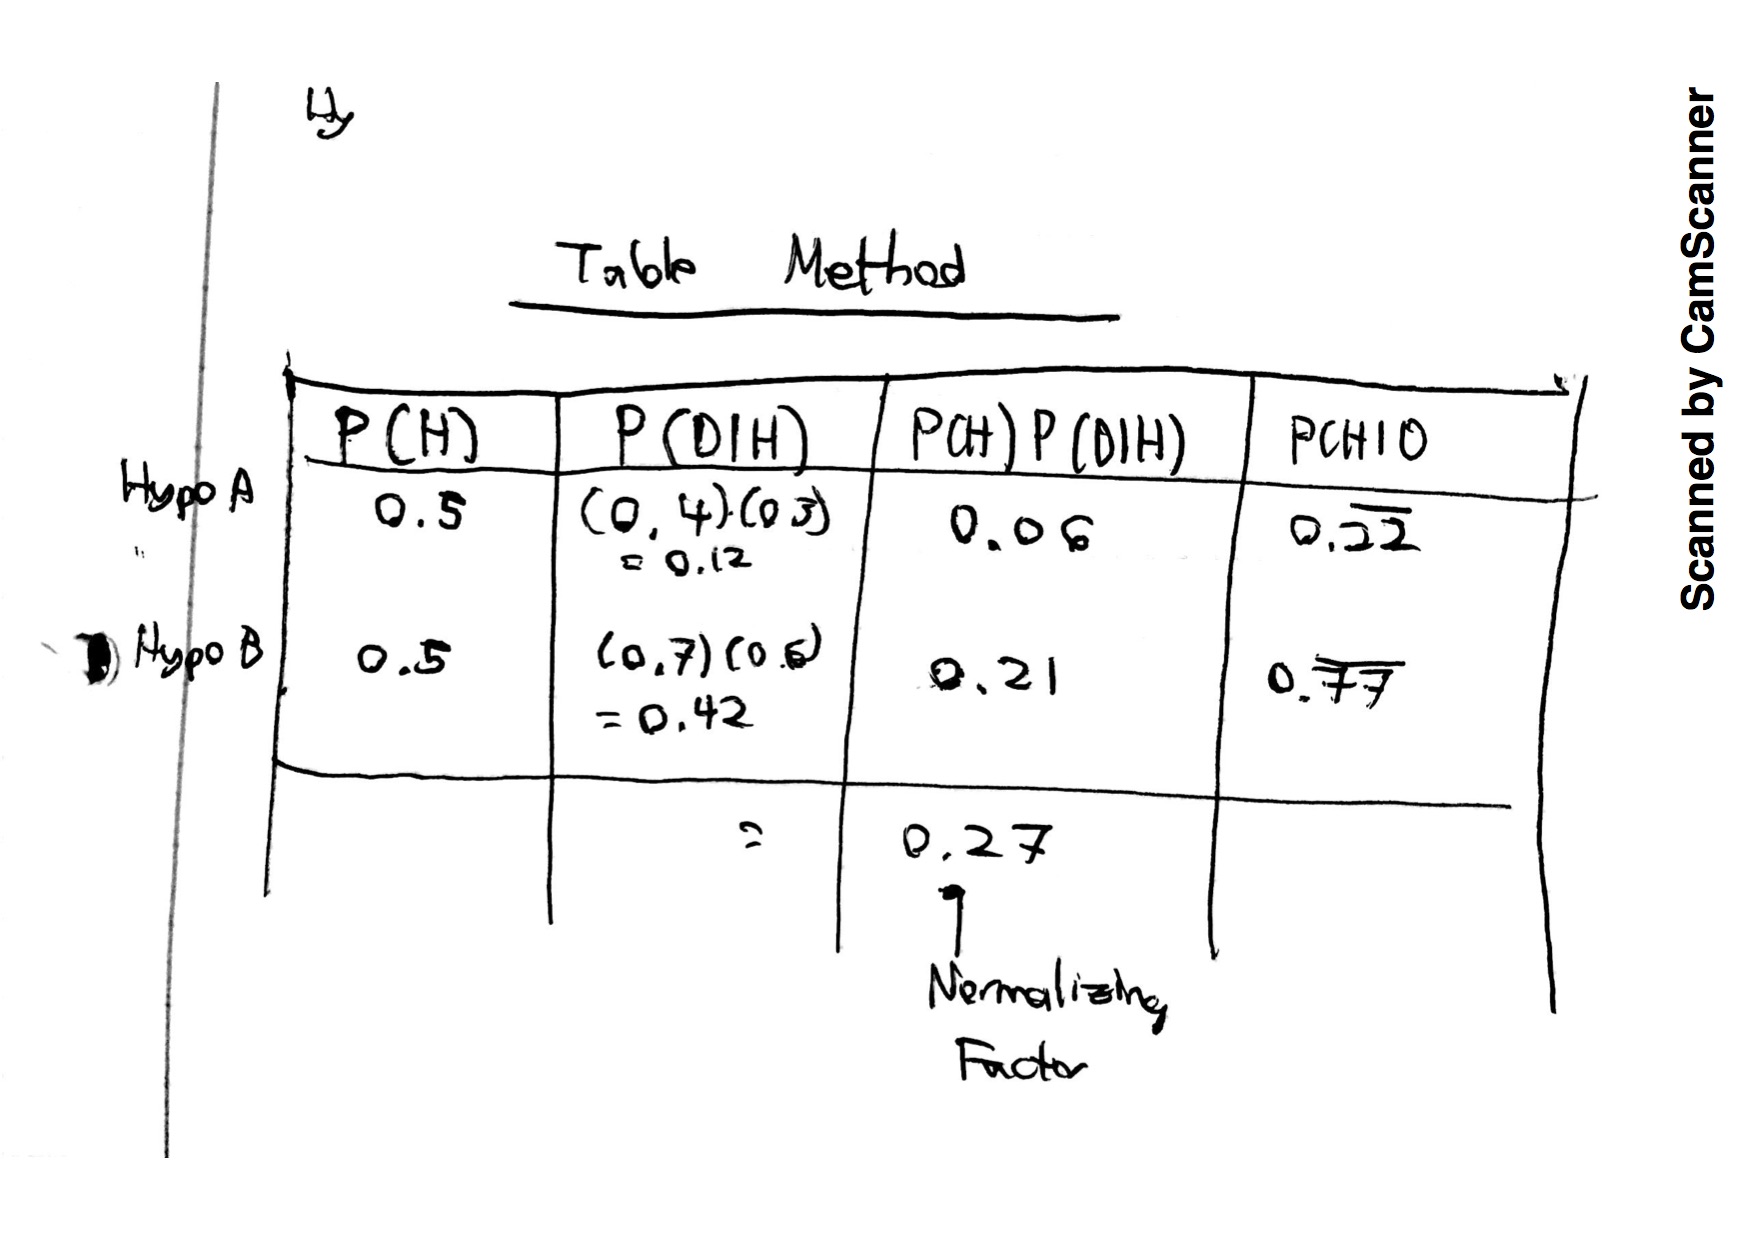 Hy
Table Method
P(H) P(D|H) P(H)P(D|H) P(H|D
Hypo A 0.5 (0.4)·(0.3) 0.06 0.22
" = 0.12
Hypo B 0.5 (0.7)(0.6) 0.21 0.77
= 0.42
= 0.27
Normalizing
Factor
Scanned by CamScanner